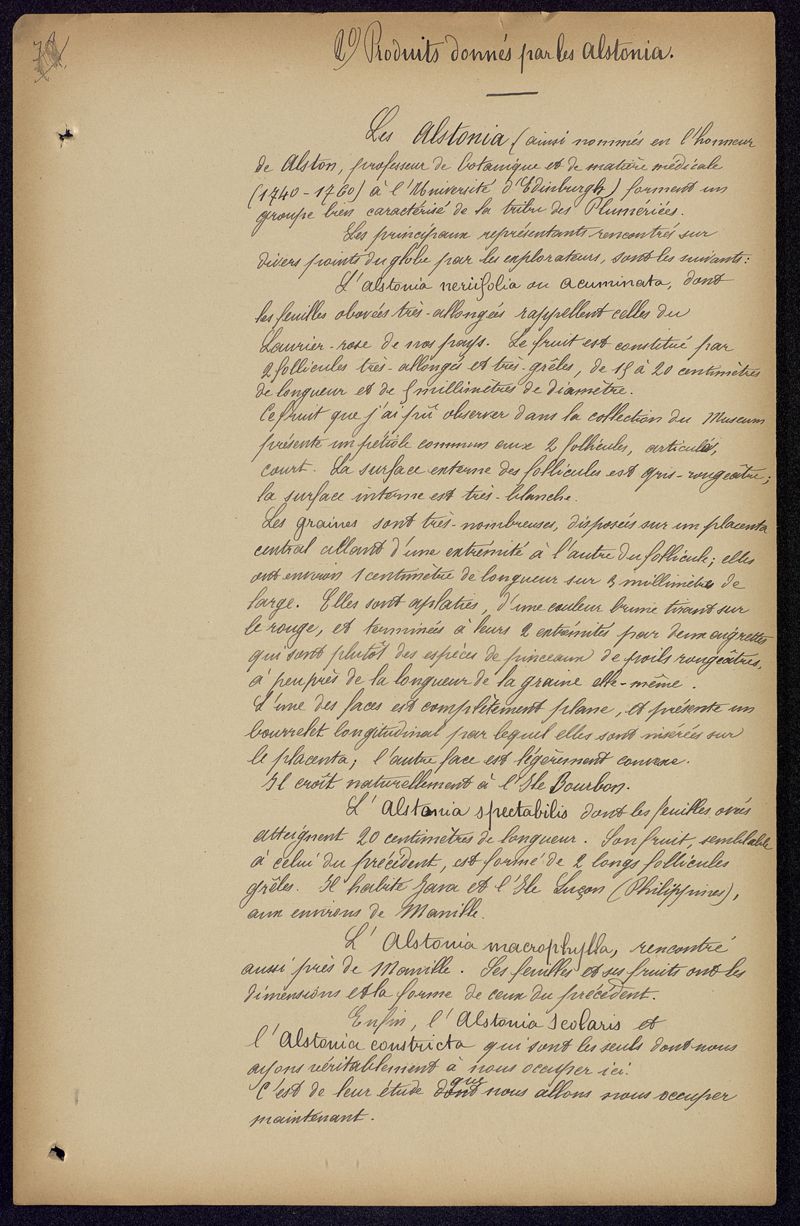 2°) Produits donnés par les Alstonia.
Les Alstonia (ainsi nommés en l'honneur
de Alston, professeur de botanique et de matière médicale
(1740-1760) à l'Université d'Edinburgh) forment un
groupe bien caractérisé de la tribu des Pluméricées.
Les principaux représentants rencontrés sur
divers points du globe par les explorateurs, sont les suivants:
L'alstonia neriifolia ou acuminata, dont
les feuilles obovées très-allongées rappellent celles du
Laurier-rose de nos pays. Le fruit est constitué par
2 follicules très-allongés et très-grêles, de 15 à 20 centimètres
de longueur et de 5 millimètres de diamètre.
Ce fruit que j'ai pû observer dans la collection du Museum
présente un pétiole commun aux 2 follicules, articulé,
court. La surface externe des follicules est gris-rougeâtre;
la surface interne est très-blanche.
Les graines sont très-nombreuses, disposées sur un placenta
central allant d'une extrémité à l'autre du follicule; elles
ont environ 1 centimètre de longueur sur 3 millimètres de
large. Elles sont aplaties, d'une couleur brune tirant sur
le rouge, et terminées à leurs 2 extrémités par deux aigrettes
qui sont plutôt des espèces de pinceaux de poils rougeâtres,
à peu près de la longueur de la graine elle-même.
L'une des faces est complètement plane, et présente un
bourrelet longitudinal par lequel elles sont insérées sur
le placenta; l'autre face est légèrement convexe.
Il croît naturellement à l'Ile Bourbon.
L'Alstonia spectabilis dont les feuilles ovées
atteignent 20 centimètres de longueur. Son fruit, semblable
à celui du précédent, est formé de 2 longs follicules
grêles. Il habite Java et l'Ile Luçon (Philippines),
aux environs de Manille.
L'Alstonia macrophylla, rencontré
aussi près de Manille. Ses feuilles et ses fruits ont les
dimensions et la forme de ceux du précédent.
Enfin, l'Alstonia Scolaris et
l'Alstonia constricta qui sont les seuls dont nous
ayons véritablement à nous occuper ici.
C'est de leur étude que nous allons nous occuper
maintenant.